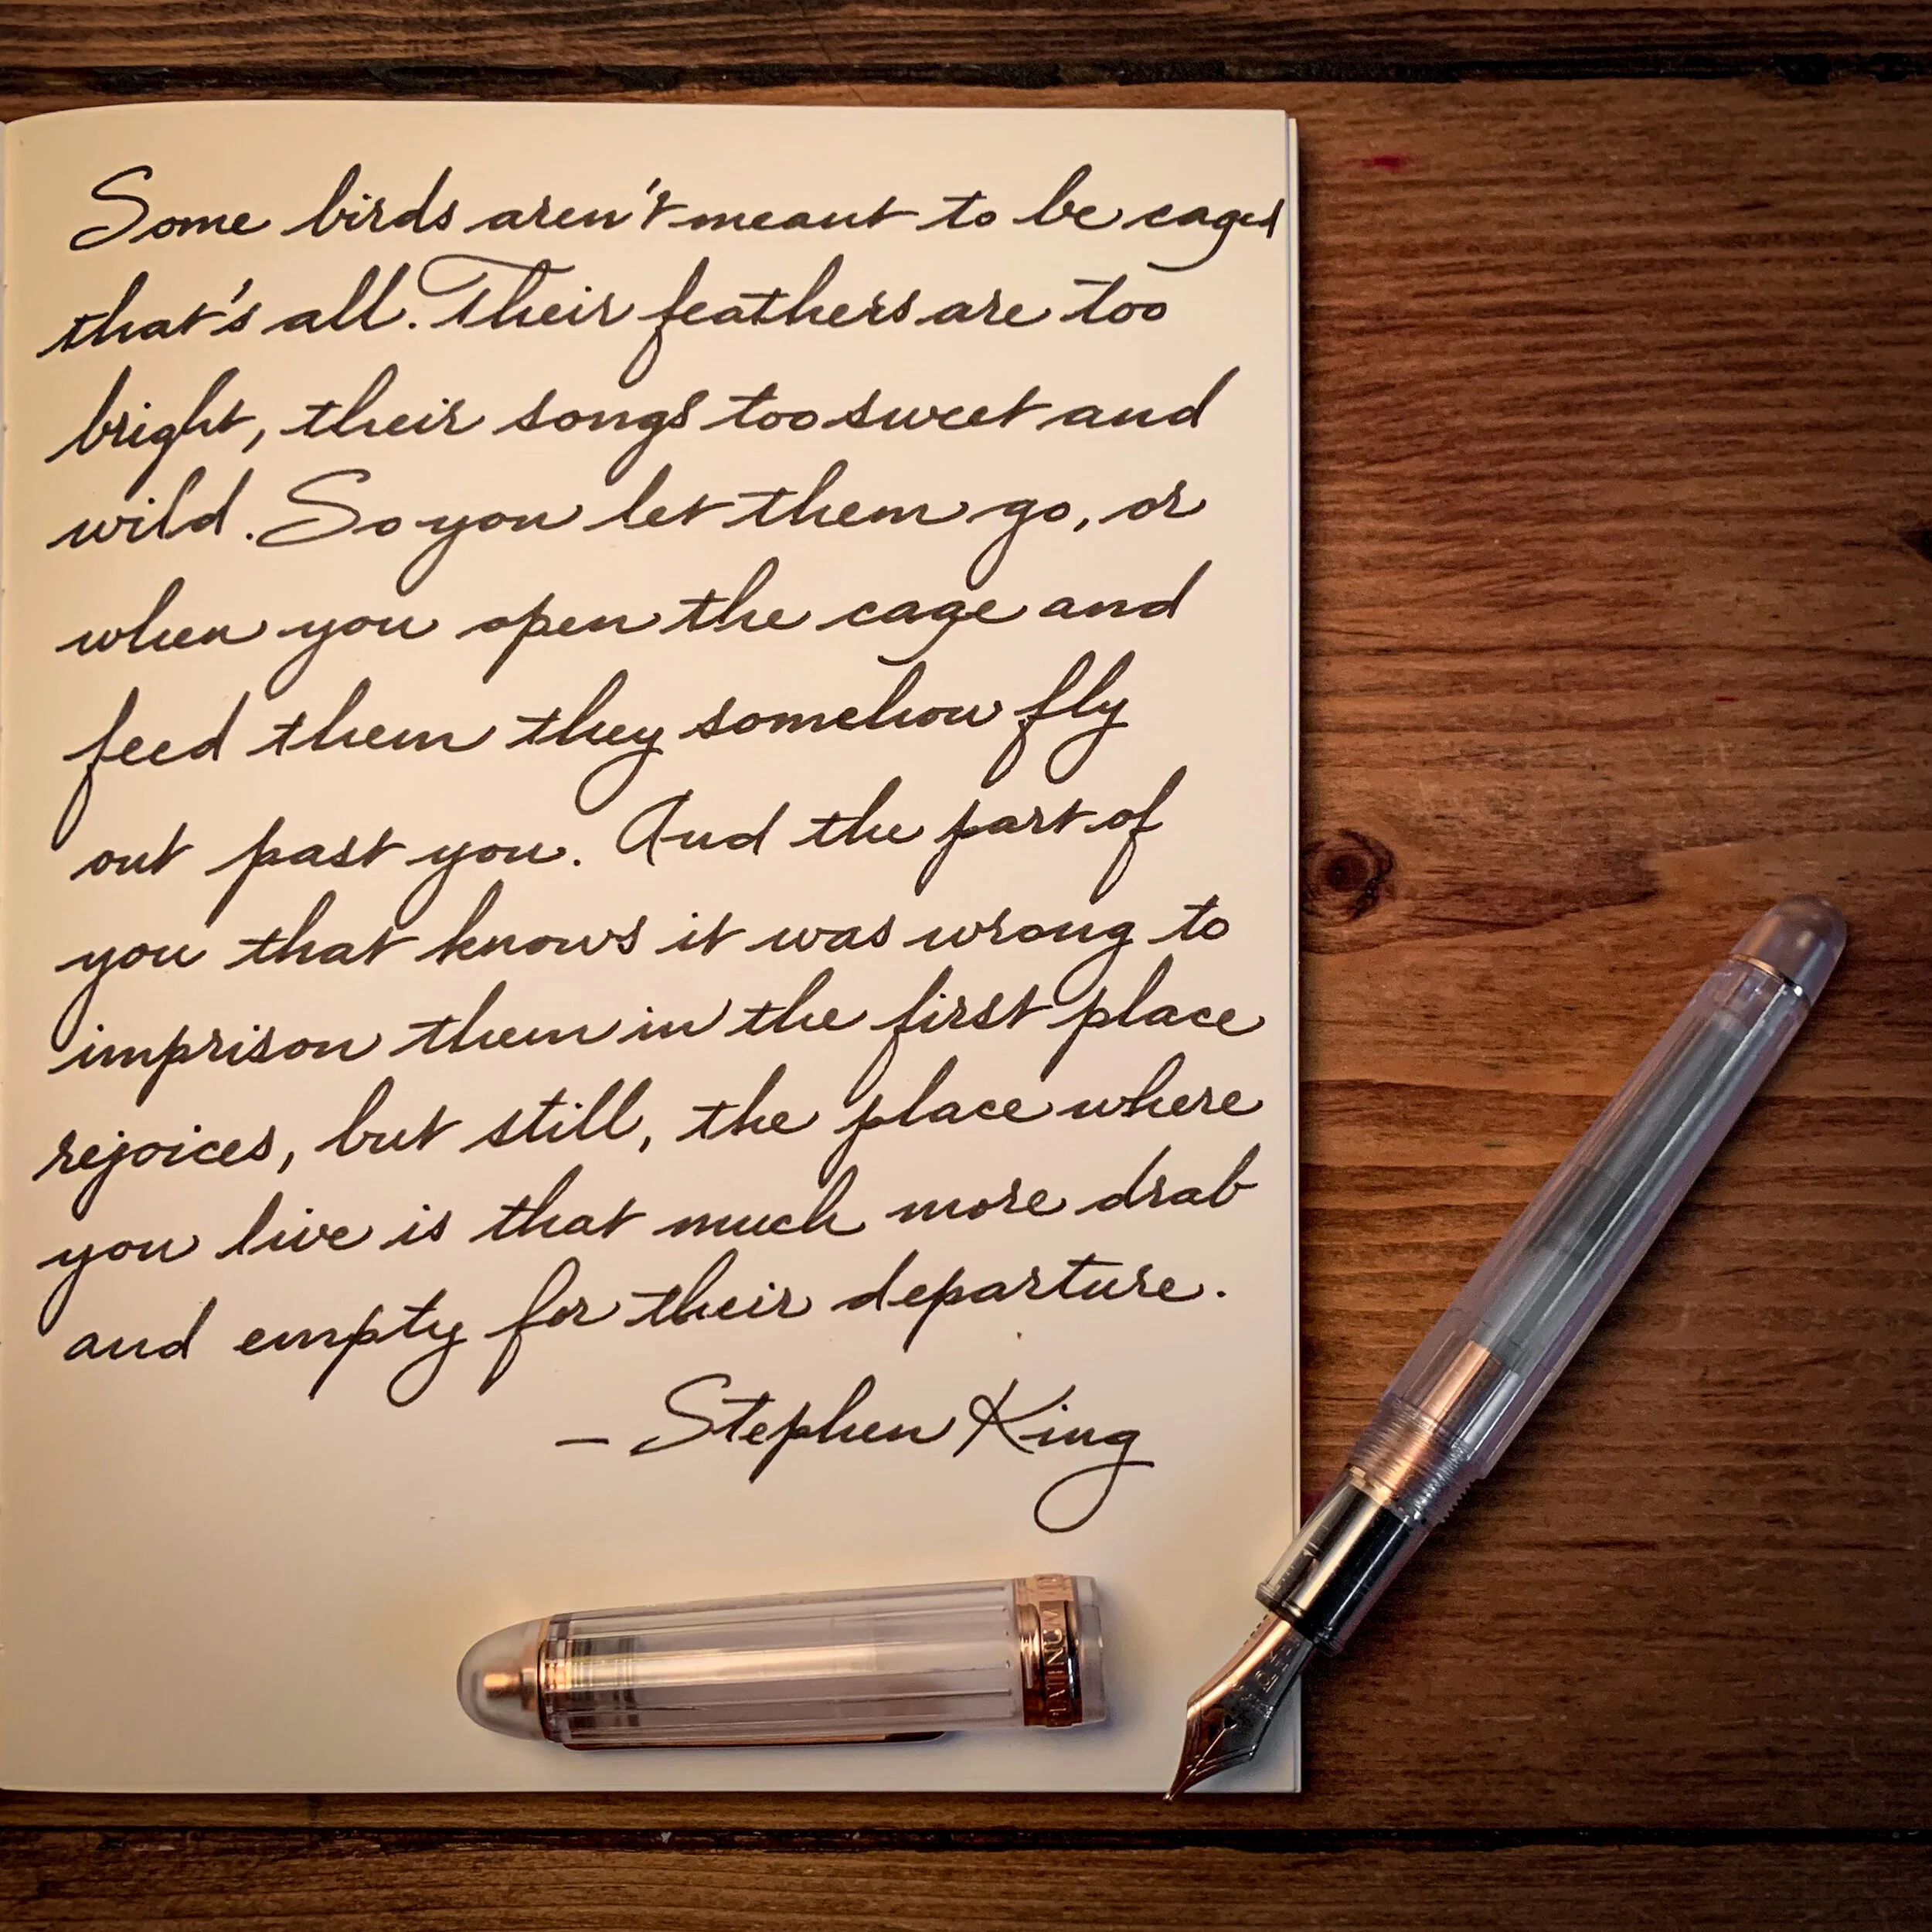 Some birds aren't meant to be caged
that's all. Their feathers are too
bright, their songs too sweet and
wild. So you let them go, or
when you open the cage and
feed them they somehow fly
out past you. And the part of
you that knows it was wrong to
imprison them in the first place
rejoices, but still, the place where
you live is that much more drab
and empty for their departure.
– Stephen King
PLATINUM